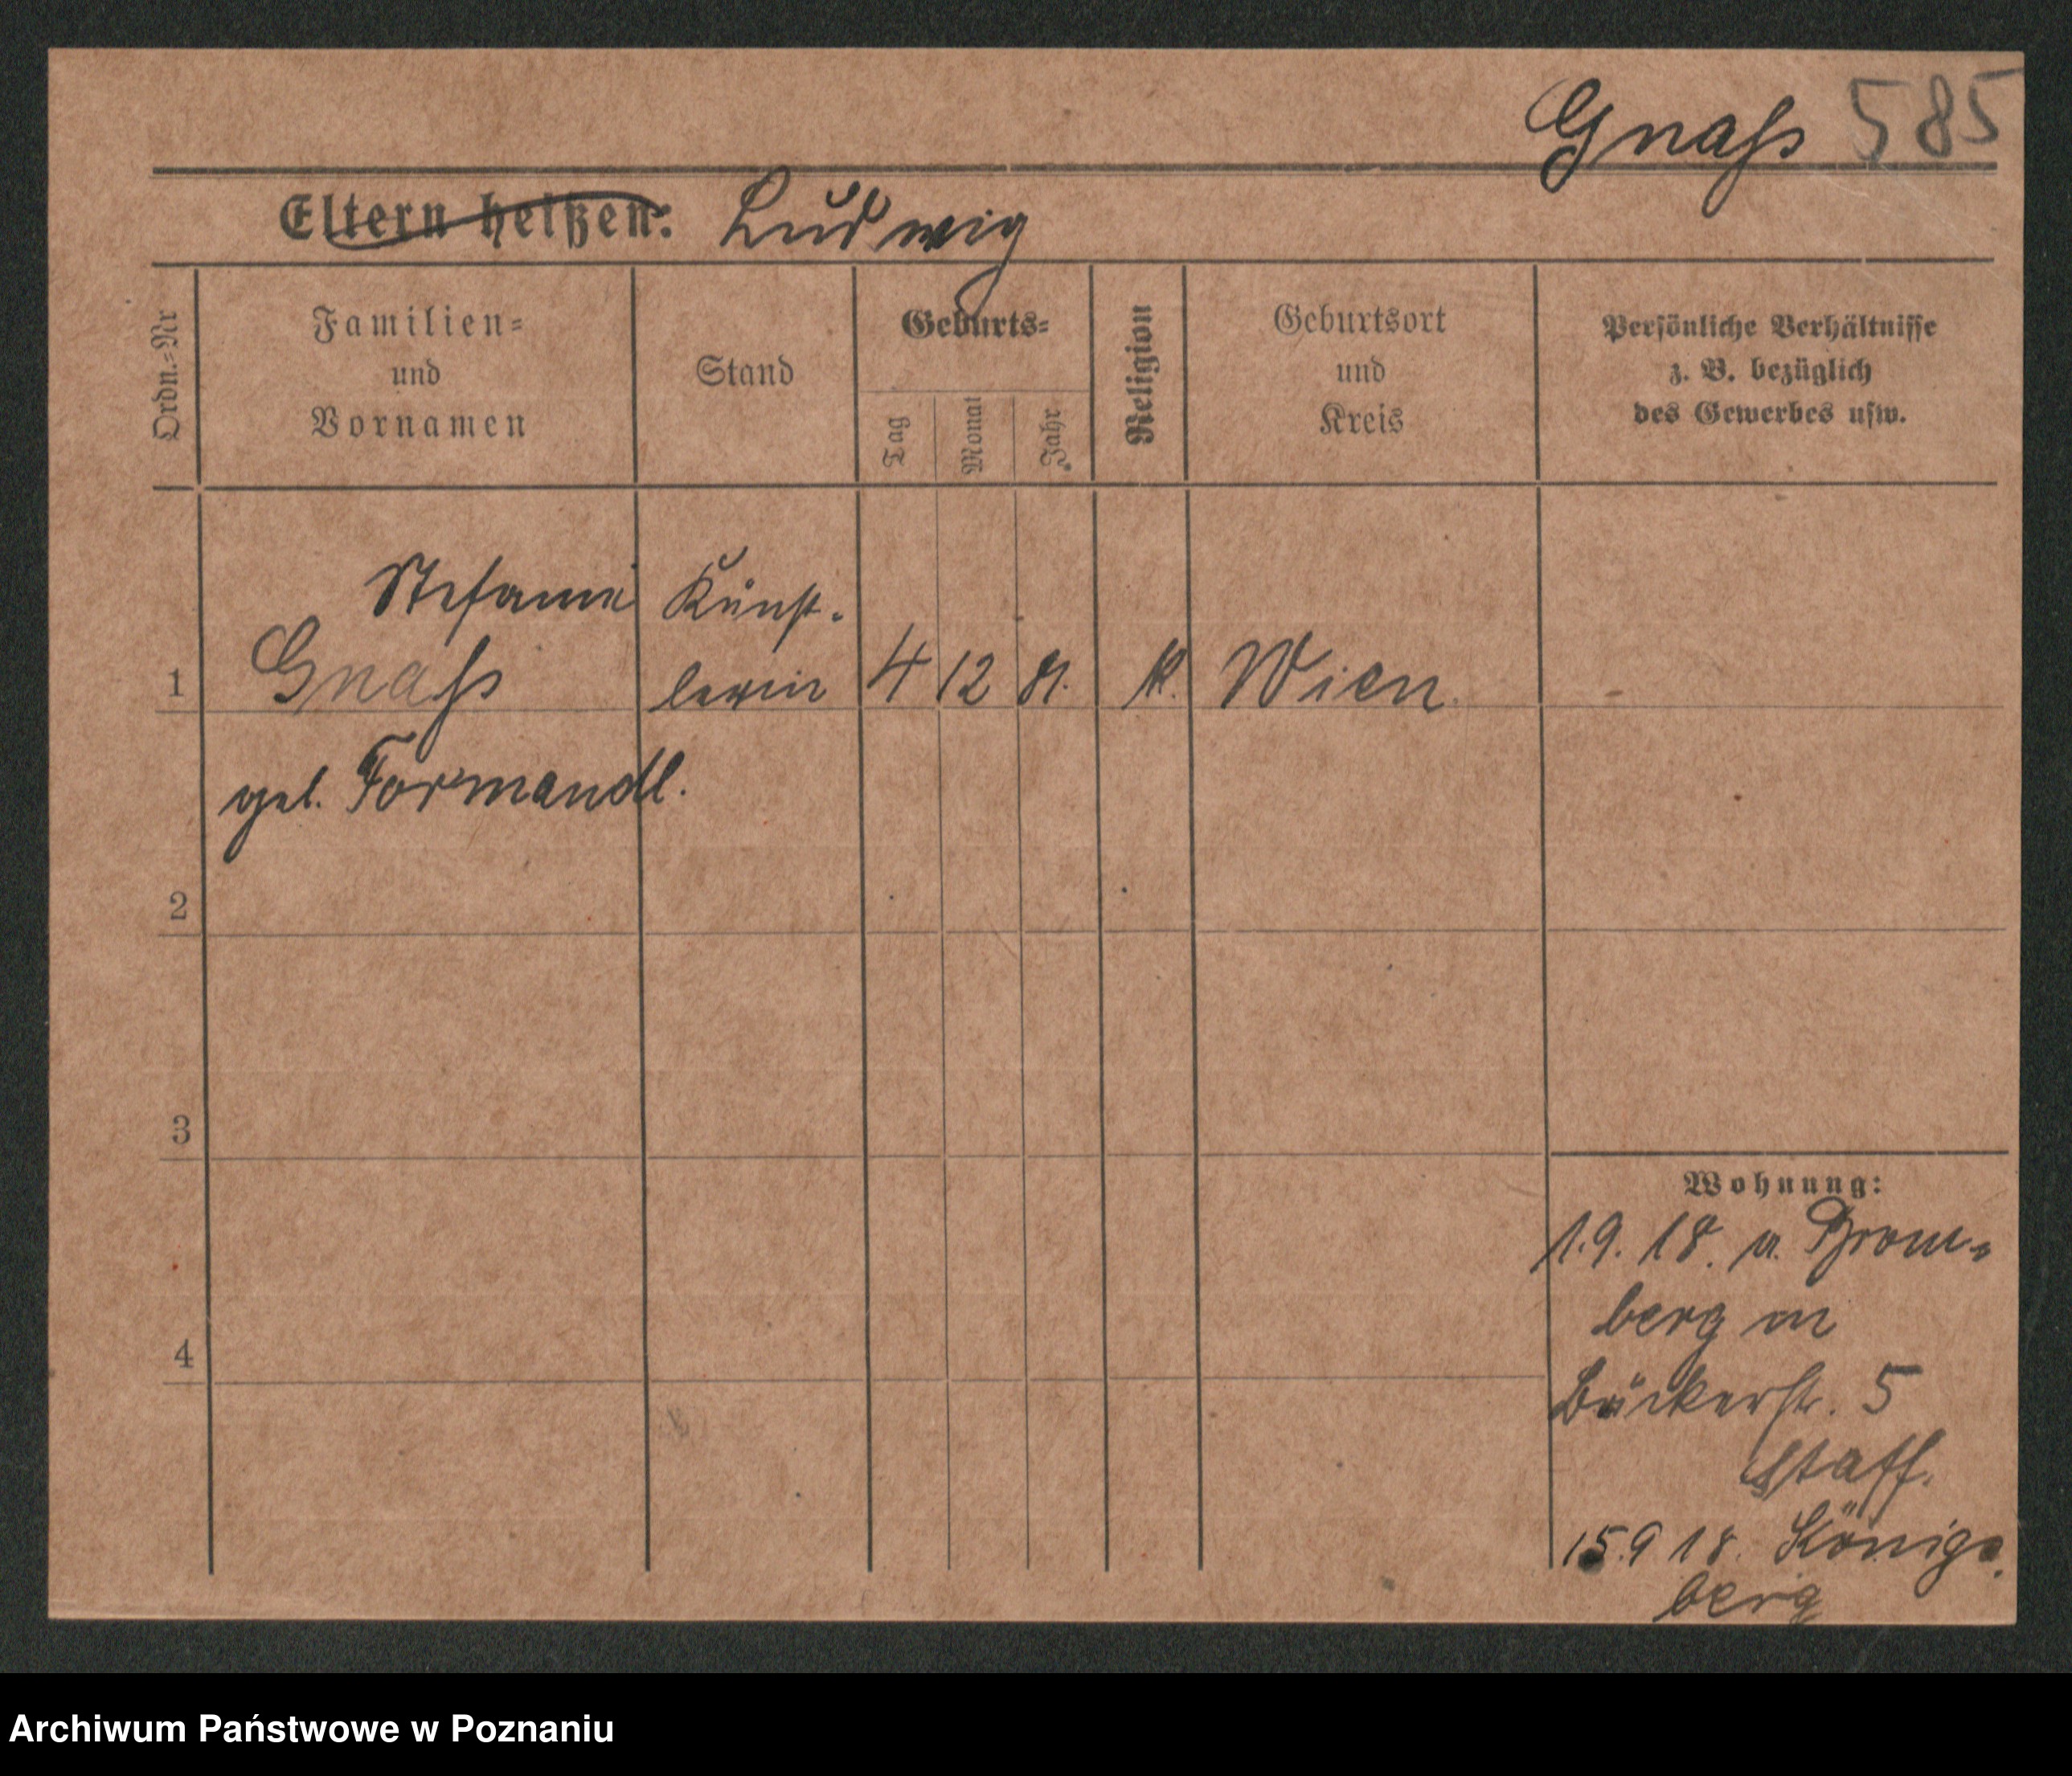 Gnaß 585
Eltern heißen: Ludwig
Ordn.=Nr
Familien=
und
Vornamen
Stand
Geburts=
Tag
Monat
Jahr
Religion
Geburtsort
und
Kreis
Persönliche Verhältnisse
z. B. bezüglich
des Gewerbes usw.
Stefanie Künst-
1 Gnaß lerin 4 12 81. k. Wien
geb. Formandl.
2
3
4
Wohnung:
1.9. 18. a. Brom=
berg in
Bäckerstr. 5
15.9 18. Königs
berg
Archiwum Państwowe w Poznaniu